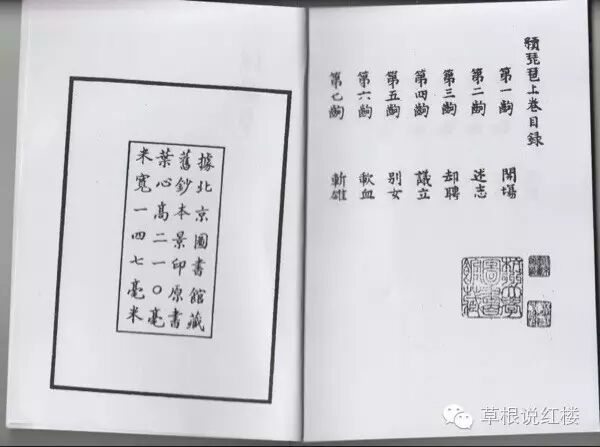 續琵琶上卷目錄
第一齣 開場
第二齣 述志
第三齣 却聘
第四齣 議立
第五齣 别女
第六齣 歃血
第七齣 斬雄
據北京圖書館藏
舊鈔本景印原書
葉心高二一〇毫
米寬一四七毫米
草根说红楼